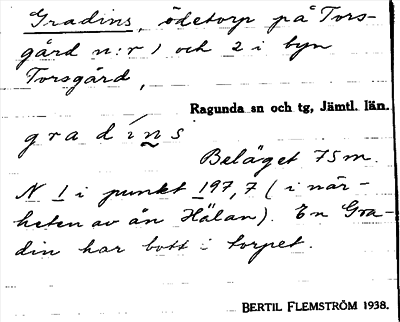 Gradins, ödetorp på Tors-
gård n:r 1 och 2 i byn
Torsgård,
Ragunda sn och tg, Jämtl. län.
gradíns
Beläget 75 m.
N 1 i punkt 197,7 (i när-
heten av ån Hälan). En Gra-
din har bott i torpet.
BERTIL FLEMSTRÖM 1938.